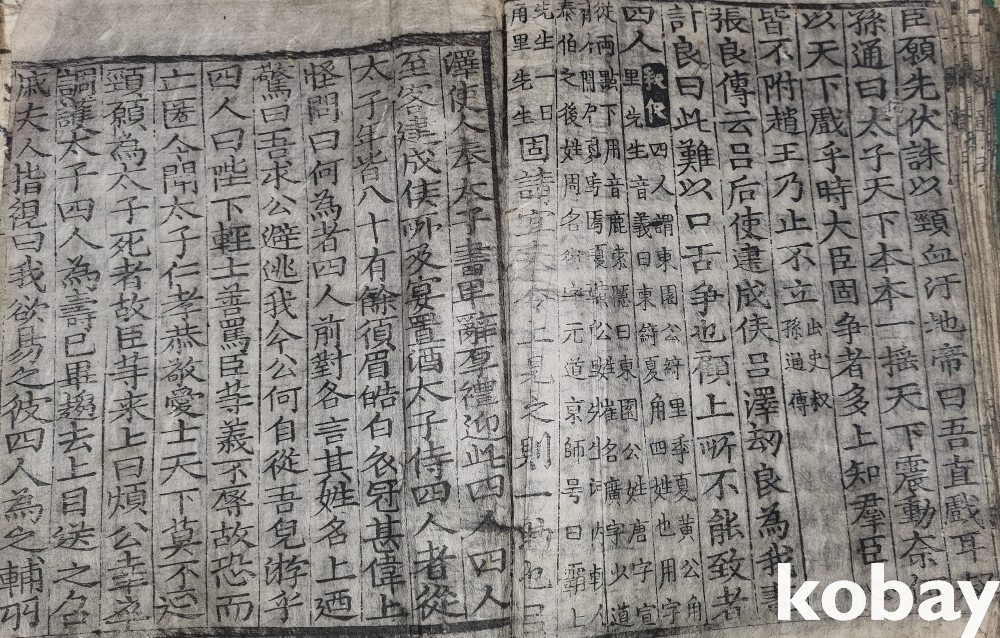 臣願先伏誅以頸血汙地帝曰吾直戲耳
孫通曰太子天下本本一搖天下震動奈
以天下戲乎時大臣固争者多上知羣臣
皆不附趙王乃止不立出史叔孫通傳
張良傳云吕后使建成侯吕澤劫良為我
計良曰此難以口舌争也顧上所不能致者
四人 四人謂東園公綺里季夏黄公角里先生音義曰東綺夏角四姓也用字
從兩點下用音鹿索隱曰東園公姓唐字宣
泰伯之後姓周名術字元道京師号曰霸上先生一曰
角里先生 固請宜来令上見之則一助也吕
澤使人奉太子書卑辭厚禮迎此四人四人
至客建成侯所及宴置酒太子侍四人者從
太子年皆八十有餘須眉皓白衣冠甚偉上
怪問曰何為者四人前對各言其姓名上迺
驚曰吾求公避逃我今公何自從吾兒游乎
四人曰陛下輕士善罵臣等義不辱故恐而
亡匿今聞太子仁孝恭敬愛士天下莫不延
頸願為太子死者故臣等来上曰煩公幸卒
調護太子四人為壽已畢趨去上目送之召
戚夫人指視曰我欲易之彼四人為之輔羽
kobay